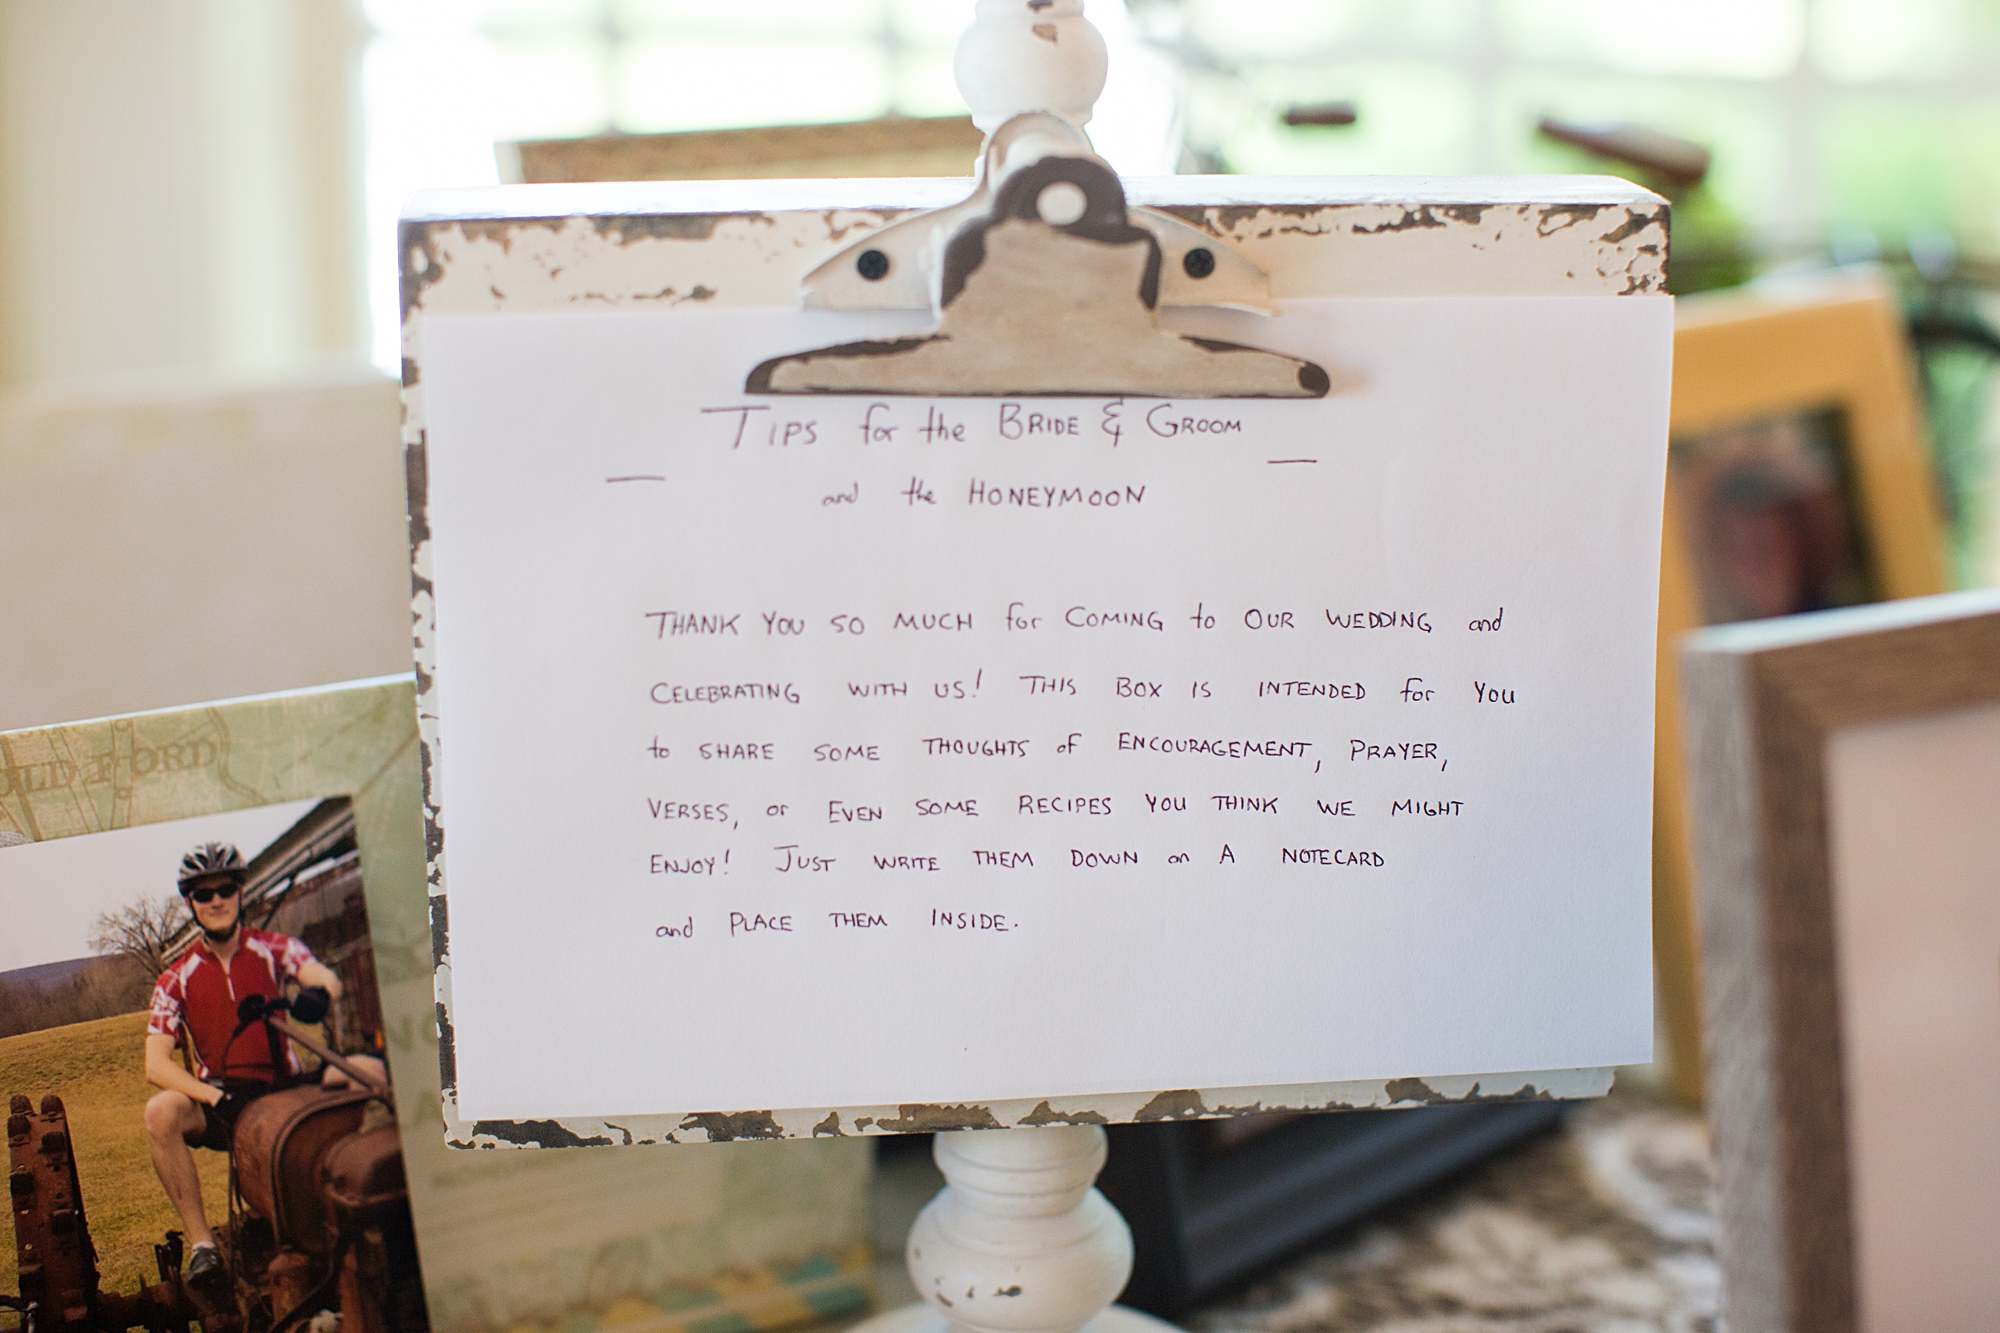 TIPS for the BRIDE & GROOM
and the HONEYMOON
THANK YOU SO MUCH for COMING to OUR WEDDING and
CELEBRATING WITH US! THIS BOX IS INTENDED for You
to SHARE SOME THOUGHTS of ENCOURAGEMENT, PRAYER,
VERSES, or EVEN SOME RECIPES YOU THINK WE MIGHT
ENJOY! JUST WRITE THEM DOWN on A NOTECARD
and PLACE THEM INSIDE.
OLD FORD